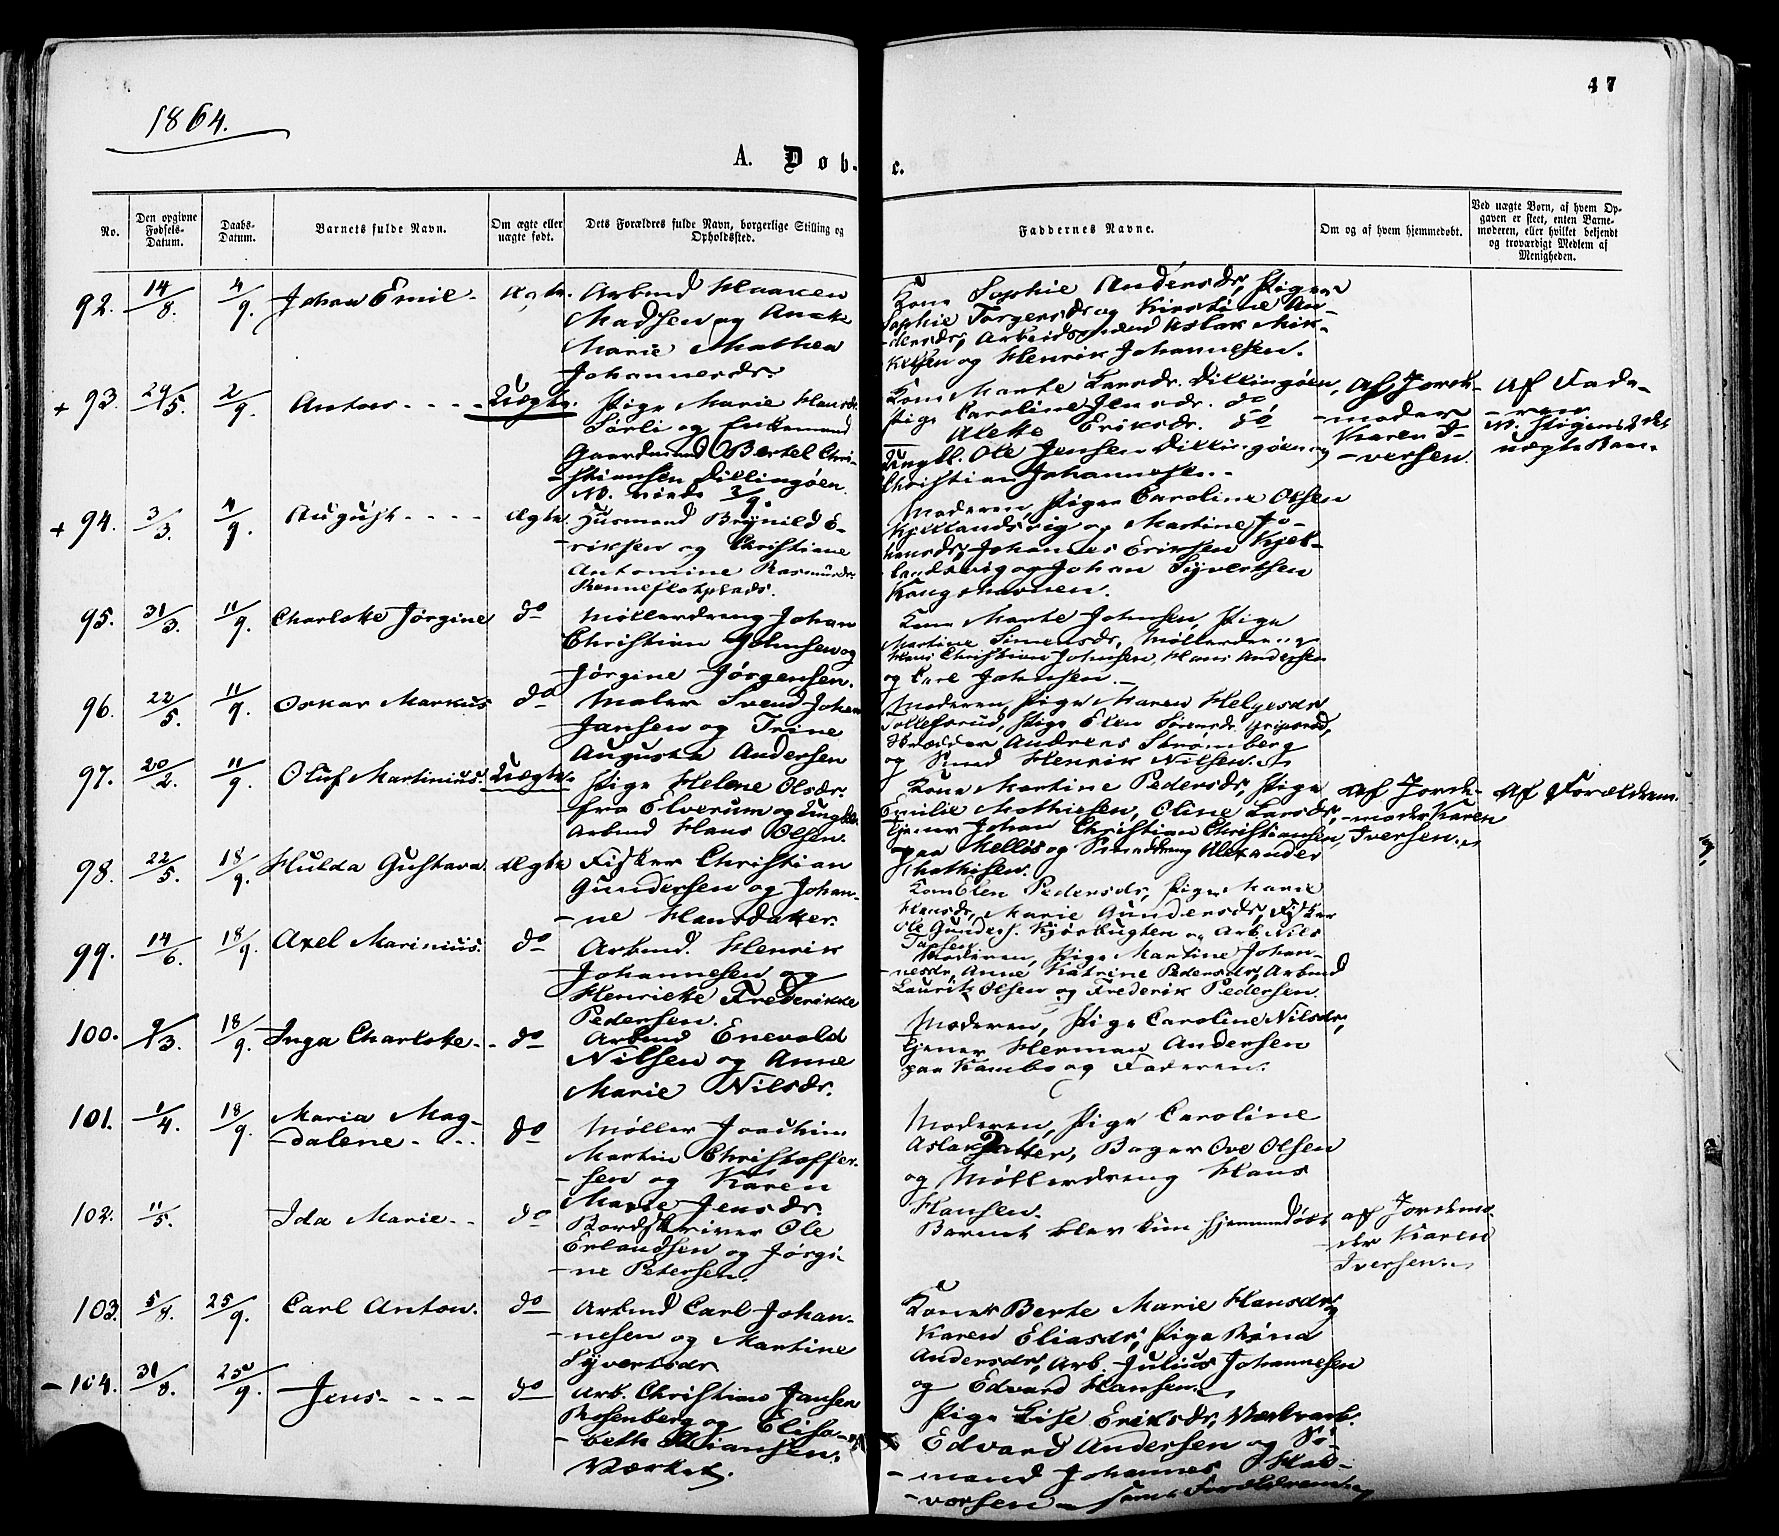 1864.
47
A. Døb-
e.
No.
Den opgivne Fødsels-Datum.
Daabs-Datum.
Barnets fulde Navn.
Om ægte eller uægte født.
Dets Forældres fulde Navn, borgerlige Stilling og Opholdssted.
Faddernes Navne.
Om og af hvem hjemmedøbt.
Ved uægte Børn, af hvem Opgaven er skeet, enten Barnemoderen, eller hvilket bekjendt og troværdigt Medlem af Menigheden.
92. 14/8. 4/9. Johan Emil - Ægte.
Arbmd Haaken
Madsen og Anette
Marie Mathea
Johannesdr.
Kone Sophie Andersdr, Piger
Sophie Torgersdr og Kirstine An-
-dersdr, Arbeidsmænd Aslak Mik-
kelsen og Henrik Johannesen.
+ 93. 29/5. 2/9. Anton - - - - Uægte.
Pige Marie Hansdr.
Sørli og Enkemand
Gaardmand Bertel Chri-
-stiansen Dillingøen.
Kone Marte Larsdr. Dillingøen,
Pige Caroline Jensdr. do,
Alette Eriksdr. do
Ungkl. Ole Jensen Dillingøen og
Christian Johannesen.
Af Jord-
-moder
Karen I-
-versen.
Af Fade-
-ren
uægte Barn.
+ 94. 3/3. 4/9. August - - - - Ægte.
Husmand Brynild E-
-riksen og Christiane
Antomine Rasmusdr
Moderen, Pige Caroline Olsen
Kjellandsvig og Martine Jo-
hansdr, Johannes Eriksen Kjel-
-landsvig og Johan Syvertsen
Kongshavnen.
95. 31/3. 11/9. Charlotte Jørgine do
Møllerdreng Johan
Christian Johnsen og
Jørgine Jørgensen.
Kone Marte Johnsen, Pige
Martine Simensdr, Møllerdreng
Hans Christian Johnsen, Hans Andersen
og Carl Johnsen.
96. 22/5. 11/9. Oskar Markus do
Maler Svend Johan
Jansen og Trine
Augusta Andersen
Moderen, Pige Maren Helgesdr
Andreas Stromberg
og Smed Henrik Nilsen.
97. 20/2. 11/9. Oluf Martinius. Uægte.
Pige Helene Olsdr.
fra Elverum og Ungkl.
Arbmd Hans Olsen.
Kone Martine Pedersdr, Pige
Emilie Mathiesen, Oline Larsdr,
Tjener Johan Christian Christiansen
paa Kellös og Smeddreng Alexander
Mathisen.
Af Jord-
-moder Karen
Iversen.
Af Forældrene.
98. 22/5. 18/9. Hulda Gustava. Ægte
Fisker Christian
Gundersen og Johan-
-ne Hansdatter.
Kone Elen Pedersdr, Pige Marie
Hansdr, Marie Gundersdr, Fisker
Ole Gunders. Kjørbugten og Arb. Nils
99. 14/6. 18/9. Axel Marinius. do
Arbmd. Henrik
Johannesen og
Henriette Frederikke
Pedersen.
Moderen, Pige Martine Johan-
-nesdr, Anne Katrine Pedersdr, Arbmd
Lauritz Olsen og Frederik Pedersen.
100. 9/3. 18/9. Inga Charlotte - - do
Arbmd Enevold
Nilsen og Anne
Marie Nilsdr.
Moderen, Pige Caroline Nilsdr,
Tjener Herman Andersen
paa Kambo og Faderen.
101. 1/4. 18/9. Maria Mag-
-dalene - - - do
Møller Joachim
Martin Christoffer-
-sen og Karen
Marie Jensdr.
Moderen, Pige Caroline
Aslaksdatter, Bager Ove Olsen
og Møllerdreng Hans
Hansen.
102. 11/5. Ida Marie - - do
Bordskriver Ole
Erlandsen og Jørgi-
-ne Petersen.
Barnet blev kun hjemmedøbt
af Jordmo-
-der Karen
Iversen.
103. 5/8. 25/9. Carl Anton. do
Arbmd Carl Johan-
-nesen og Martine
Syvertsdr
Koner Berte Marie Hansdr og
Karen Eliasdr, Pige Rina
Andersdr, Arb. Julius Johannesen
og Edvard Hansen.
- 104. 31/8. 25/9. Jens - - - - do
Arb. Christian Jansen
Rosenberg og Elisa-
-beth
Værket.
Pige Lise Eriksdr, Værkarb.
Edvard Andersen og Sø-
-mand Johannes Hal-
-vorsen samt Forældrene